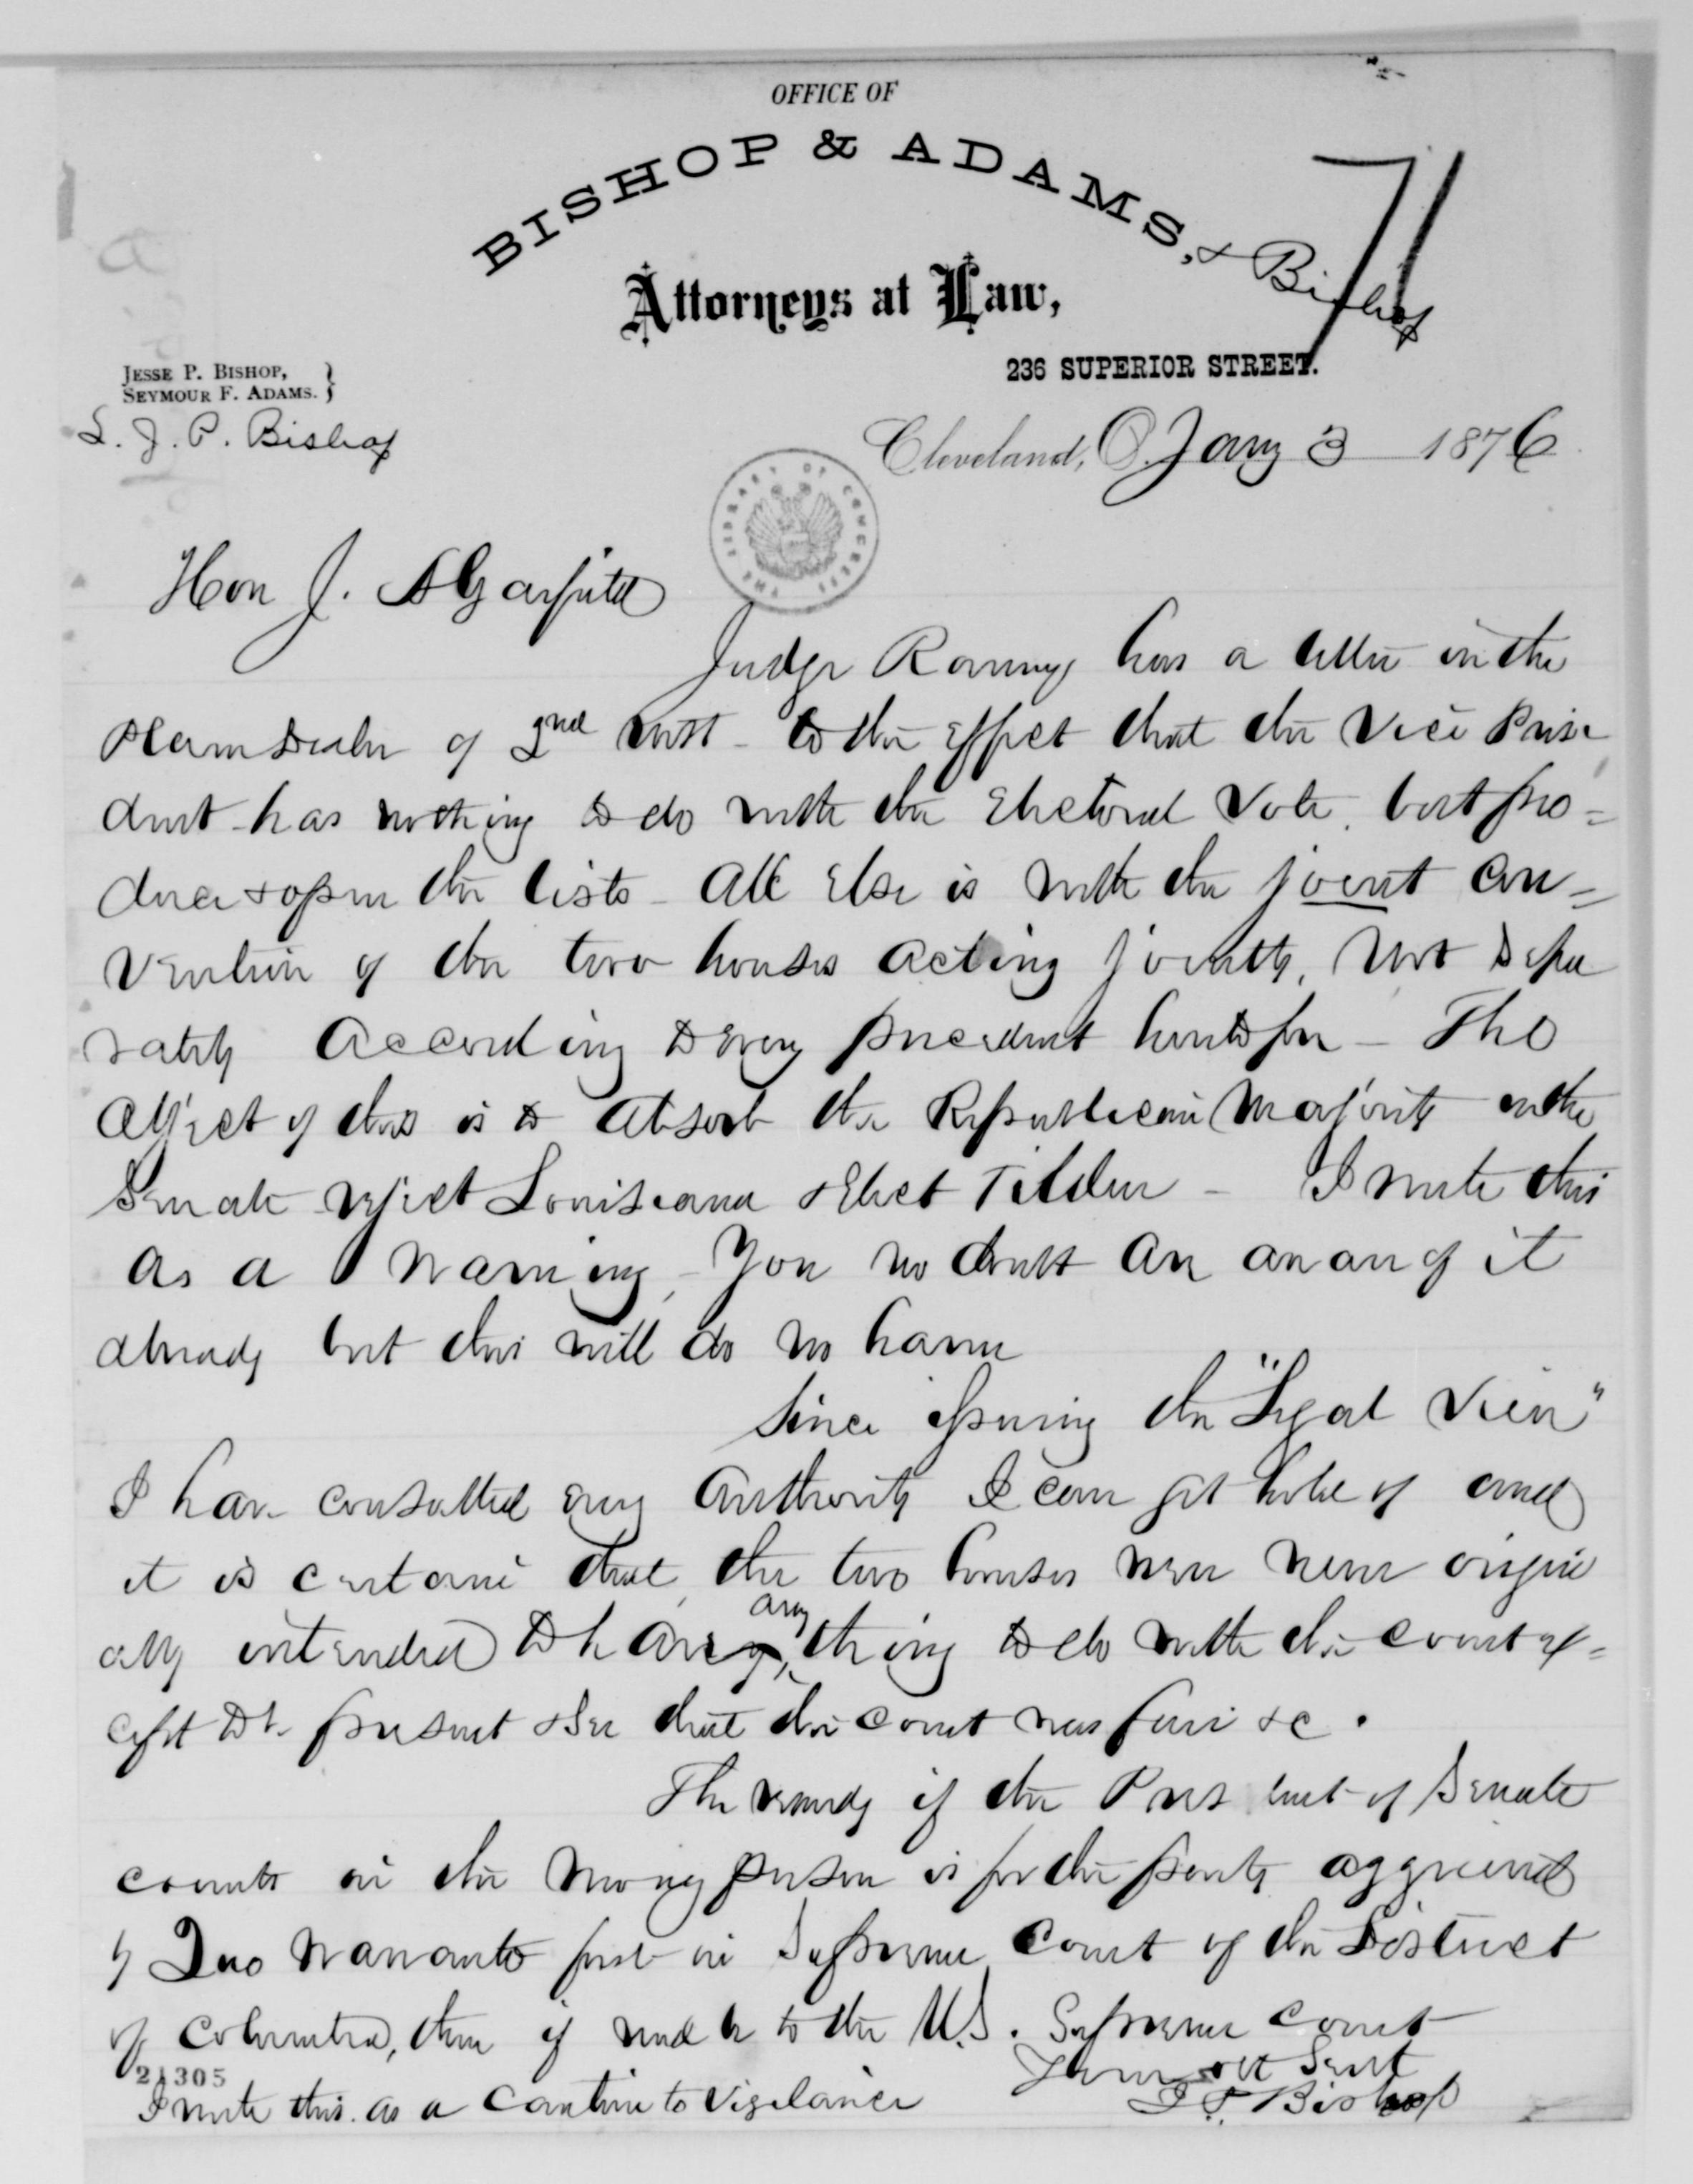 OFFICE OF
BISHOP & ADAMS, & Bishop
Attorneys at Law,
236 SUPERIOR STREET.
71
JESSE P. BISHOP,
SEYMOUR F. ADAMS. }
L. J. P. Bishop
Cleveland, O. Jany 3 1876
THE LIBRARY OF CONGRESS
Hon J. A Garfield
Judge Ranney has a letter in the
Plain Dealer of 2nd inst - to the effect that the Vice Presi
dent has nothing to do with the Electoral Vote, but pro=
duce & open the lists - All Else is with the joint con=
vention of the two houses acting jointly, Not Sepa
rately According to Every precedent heretofore - The
object of this is to absorb the Republican Majority in the
Senate reject Louisiana & Elect Tilden - I write this
as a warning, - You no doubt are aware of it
already but this will do no harm
Since issuing the "Legal View"
I have consulted Every Authority I can get hold of and
it is certain that the two houses were never origin
ally intended to have any thing to do with the count ex=
cept to be present & See that the count was fair &c.
The remedy if the President of Senate
counts in the wrong person is for the party aggrieved
by Quo Warranto first in Supreme Court of the District
of Columbia, then if need be to the U.S. Supreme Court
Your obt Servt
J P. Bishop
21305
I write this as a Caution to Vigilance